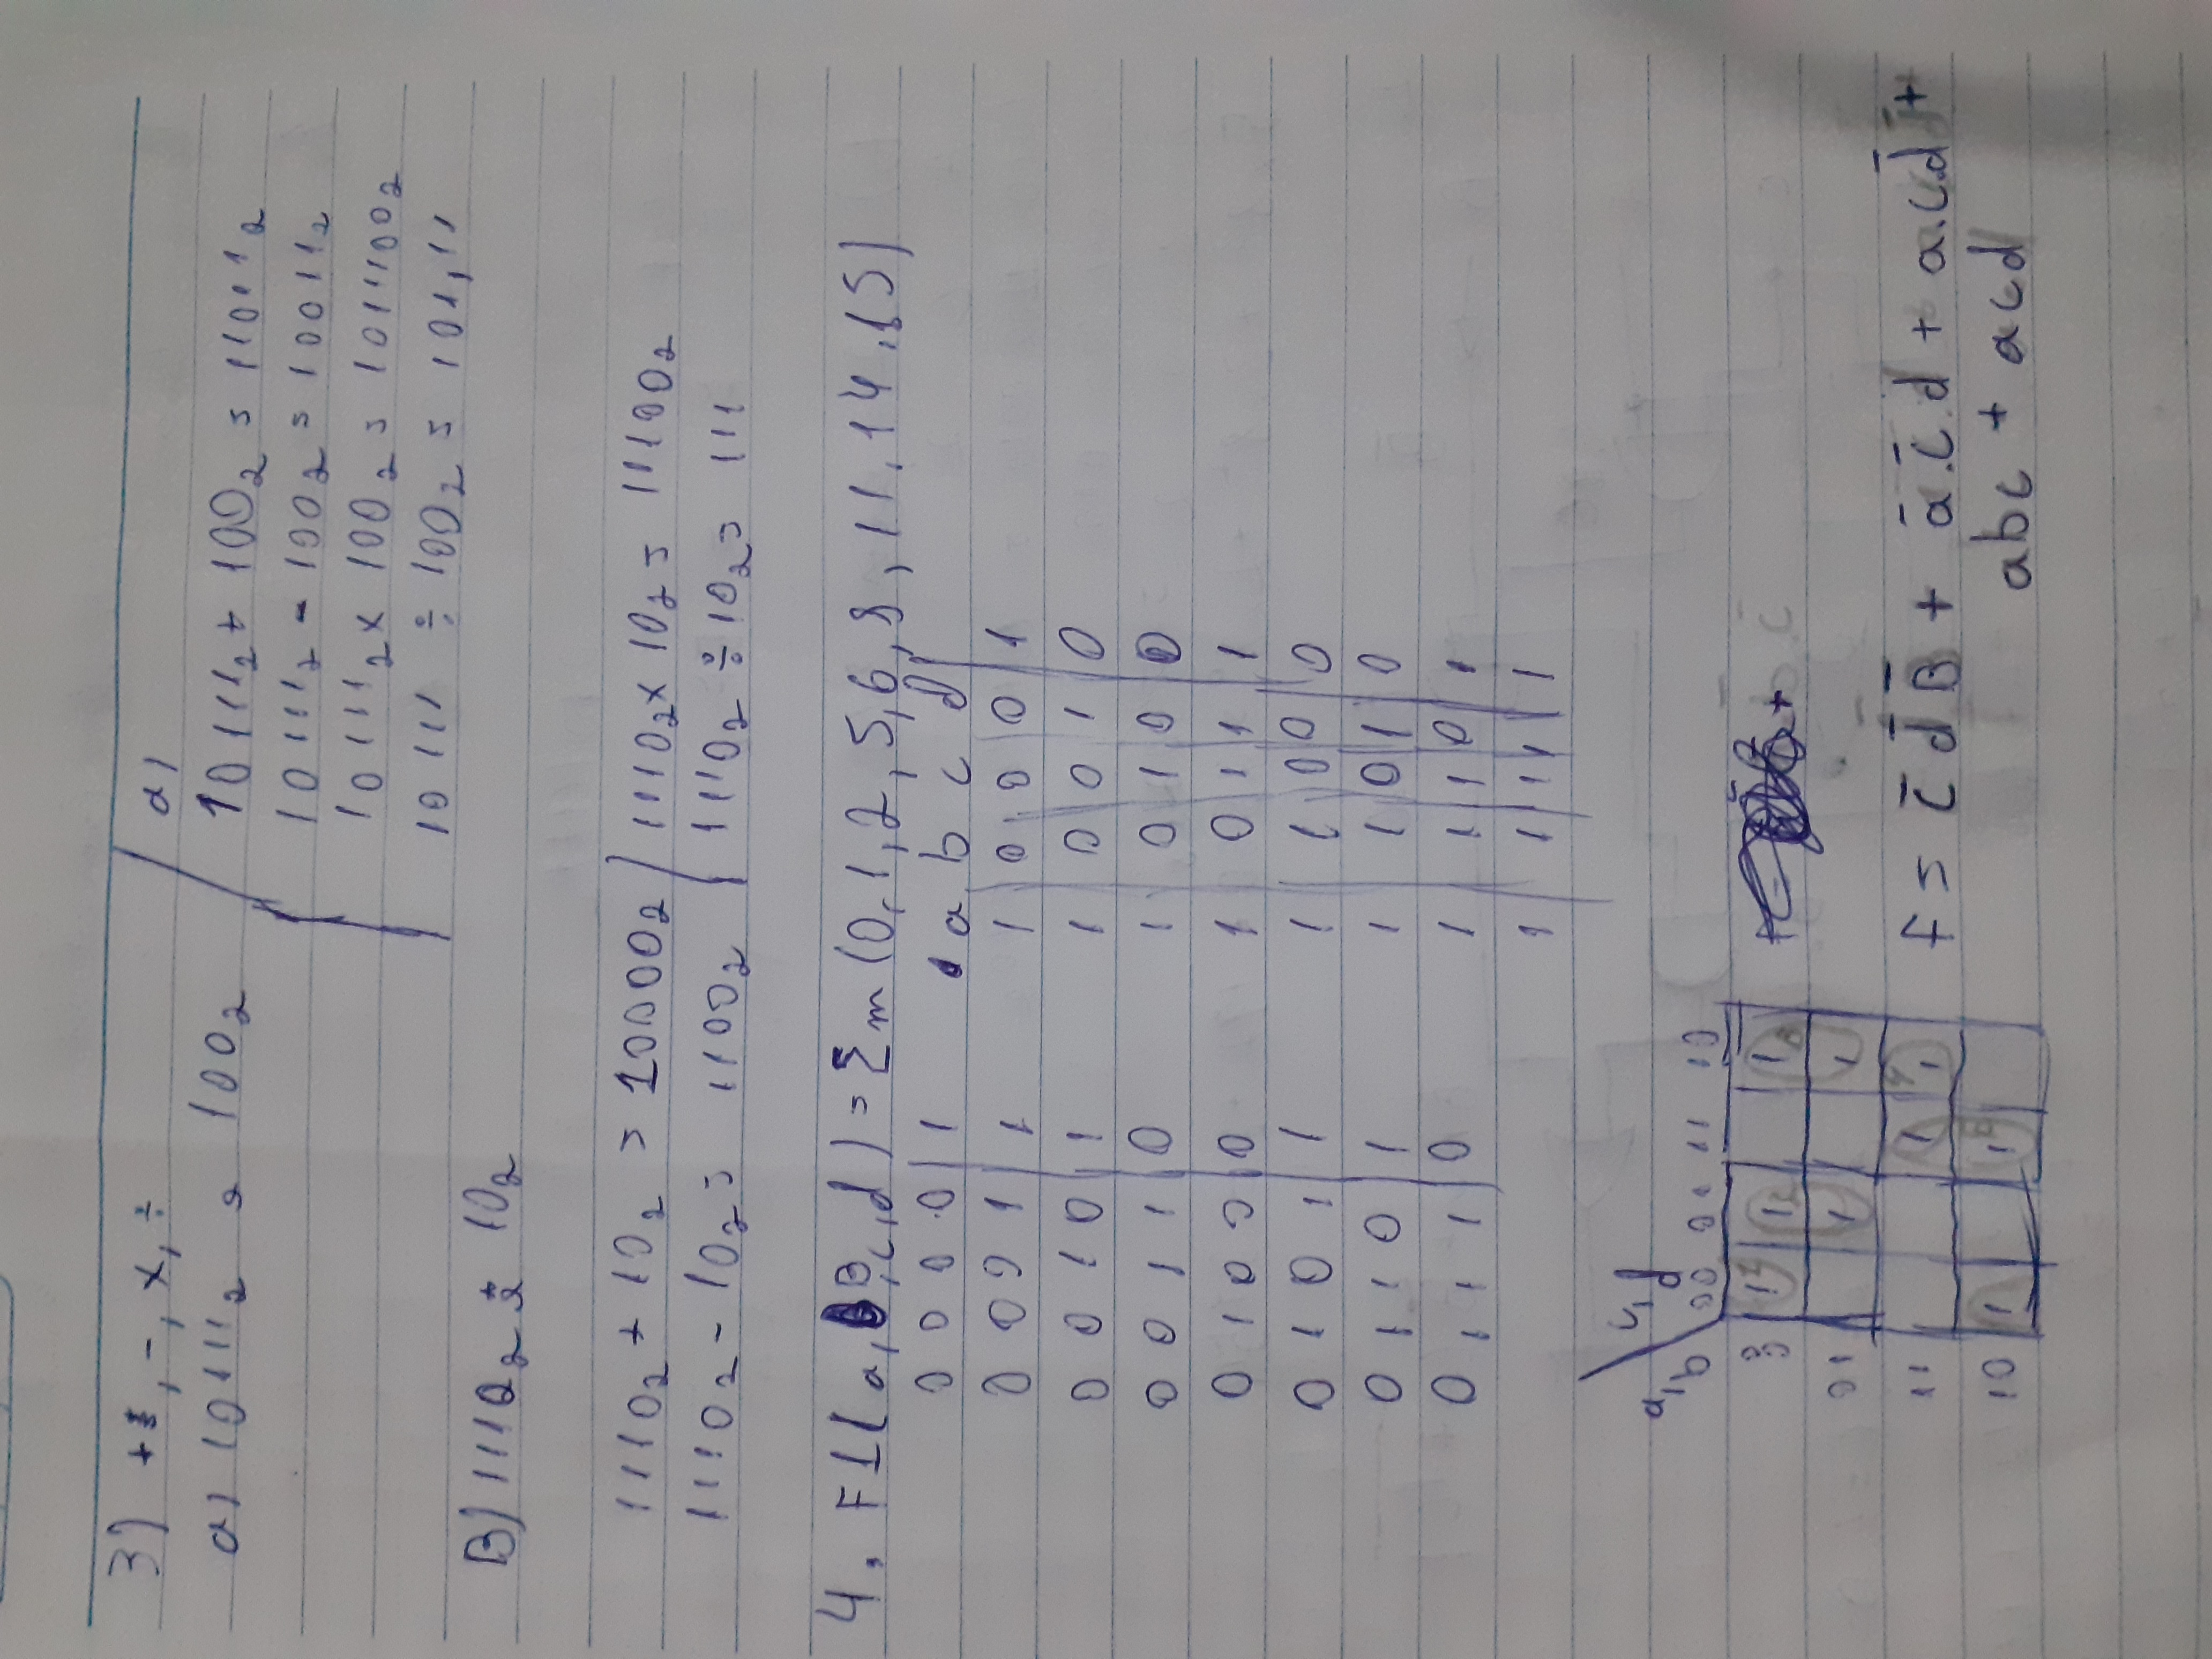 3) +, -, x, ÷
a) 10111₂ e 100₂
a)
10111₂ + 100₂ = 11011₂
10111₂ - 100₂ = 10011₂
10111₂ x 100₂ = 1011100₂
10111 ÷ 100₂ = 101,11
B) 1110₂ e 10₂
1110₂ + 10₂ = 10000₂
1110₂ - 10₂ = 1100₂
1110₂ x 10₂ = 11100₂
1110₂ ÷ 10₂ = 111
4. F1(a, B, c, d) = Σm (0, 1, 2, 5, 6, 8, 11, 14, 15)
0 0 0 0 1
0 0 0 1 1
0 0 1 0 1
0 0 1 1 0
0 1 0 0 0
0 1 0 1 1
0 1 1 0 1
0 1 1 1 0
a b c d
1 0 0 0 1
1 0 0 1 0
1 0 1 0 0
1 0 1 1 1
1 1 0 0 0
1 1 0 1 0
1 1 1 0 1
1 1 1 1 1
c, d
a, b 00 01 11 10
00 1 1 1
01 1 1
11 1 1
10 1 1
+
f = c̄ d̄ B̄ + ā.c̄.d + a.c.d̄ +
abc + acd